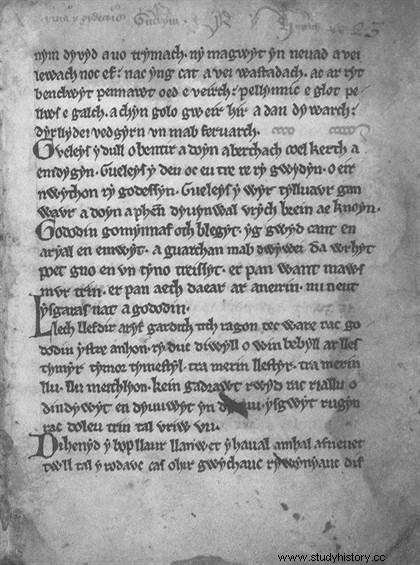 23
nym dyvyd a uo trymach. ny magwyt yn neuad a vei
lewach noc ef; nac yng cat a vei wastadach. ac ar ryt
benclwyt pennawt oed e veirch; pellynnic e glot pe
llws e galch. a chyn golo gweir hir a dan dywarch;
dyrllydei vedgyrn vn mab feruarch.
Gveleys y dull o bentir a doyn aberthach coel kerth a
emdygyn. Gueleys y deu oc eu tre re ry gwydyn. o eir
nwython ry godessyn. Gueleys y wyr tylluavr gan
wavr a doyn a phen dyuynwal vrych brein ae knoyn.
Gododin gomynnaf oth blegyt. yg gwyd cant en
aryal en emwyt. a guarchan mab dwywei da wrhyt
poet gno en vn tyno treissyt. er pan want maws
mvr trin. er pan aeth daear ar aneirin. nu neut
ysgaras nat a gododin.
Llech llefdir aryf gardith tith ragon tec ware rac go
dodin ystre anhon. ry duc diwyll o win bebyll ar lles
tymyr tymor tymestyl. tra merin llestyr. tra merin
llu. llu meithlyon. kein gadrawt rwyd rac riallu o
dindywyt en dyuuwyt yn ysgwyt rugyn
rac doleu trin tal vriw vu.
Dihenyd y bop llaur llanwet y haual amhal afneuet
twll tal y rodavc cas ohir gwychauc rywynyauc dif